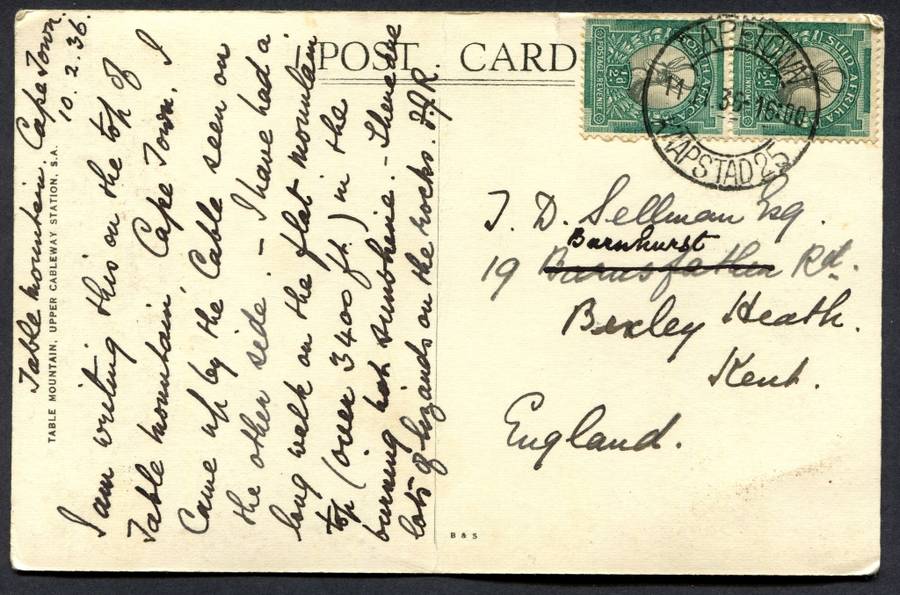 Table Mountain. Cape Town.
10. 2. 36
TABLE MOUNTAIN, UPPER CABLEWAY STATION, S.A.
I am writing this on the top of
Table Mountain, Cape Town. I
Came up by the Cable seen on
the other side. – I have had a
long walk on the flat mountain
top (over 3400 ft) in the
burning hot sunshine. – There are
lots of lizards on the rocks.
POST CARD
SUID-AFRIKA
CAPE TOWN
36-16:00
KAAPSTAD 25
J. D. Sellman Esq.
Burnhurst
19 Burnsfather Rd.
Bexley Heath.
Kent.
England.
B & S